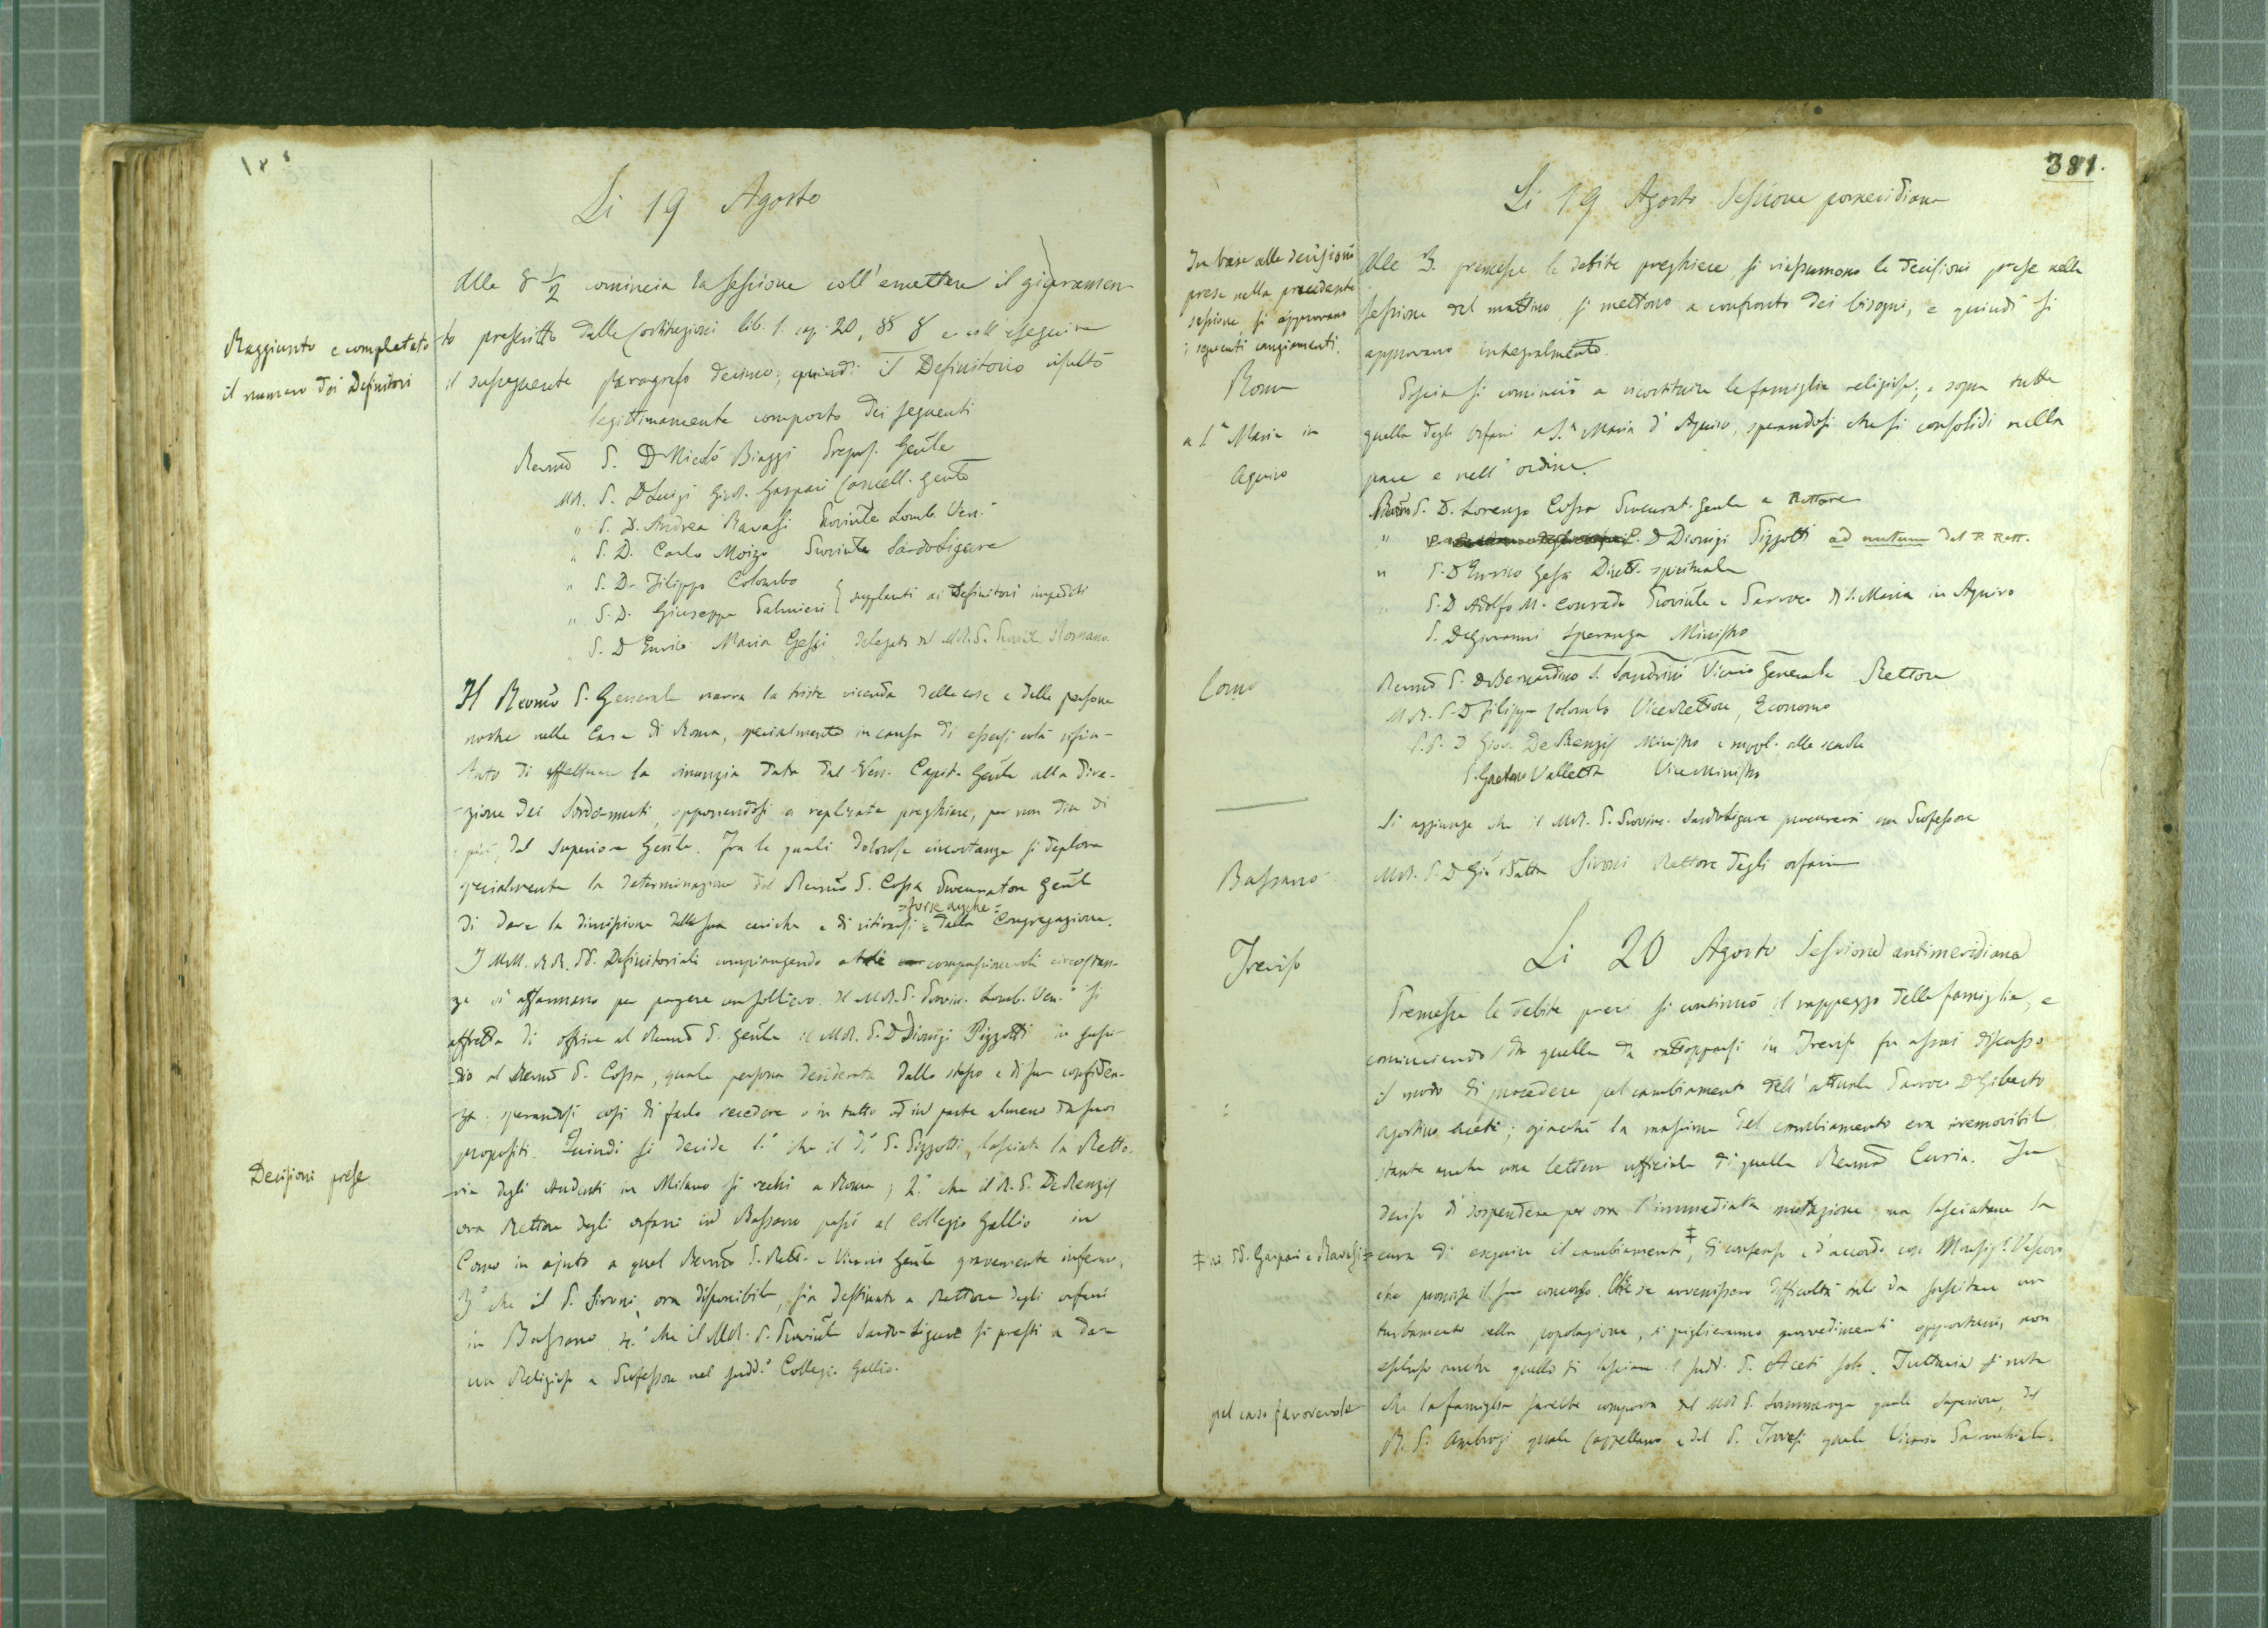 Li 19 Agosto
Alle 8 1/2 comincia la sessione coll'emettere il giuramen-
Raggiunto e completato
il numero dei Definitori
to prescritto dalle Costituzioni lib. 1. cap. 20, §§ 8 e coll'eseguire
il susseguente paragrafo decimo; quindi il Definitorio risultò
legittimamente composto dei seguenti
Revmo P. D Nicolò Biaggi Prepos. Genle
M.R. P. D Luigi Girol. Gaspari Cancell. genle
" P. D. Andrea Ravasi Provinle Lomb. Ven.º
" P. D. Carlo Moizo Provinle Sardo Ligure
" P. D. Filippo Colombo
" P. D. Giuseppe Palmieri } supplenti ai Definitori impediti
" P. D Enrico Maria Gessi delegato del M.R. P. Provinle Romano
Il Revmo P. Generale narra la triste vicenda delle cose e delle persone
nostre nelle Case di Roma, specialmente in causa di essersi colà rifiu-
tato di effettuare la rinunzia data dal Ven. Capit. Genle alla dire-
zione dei Sordo-muti, opponendosi a replicate preghiere, per non dire di
più, del Superiore Genle. Fra le quali dolorose circostanze si deplora
specialmente la determinazione del Revmo P. Cossa Procuratore Genle
= forse anche =
di dare la dimissione delle sue cariche e di ritirarsi = dalla Congregazione.
I MM. RR. PP. Definitoriali compiangendo a tali compassionevoli circostan-
ze si affannano per porgere un sollievo. Il M.R. P. Provin. Lomb. Ven.º si
affretta di offrire al Revmo P. Genle il M.R. P. D Dionigi Pizzotti in sussi-
dio al Revmo P. Cossa, quale persona desiderata dallo stesso e di sua confiden-
za, sperandosi così di farlo recedere o in tutto od in parte almeno da suoi
propositi. Quindi si decide 1.º che il dº P. Pizzotti, lasciata la Retto-
Decisioni prese
ria degli studenti in Milano si rechi a Roma; 2.º che il R. P. DeRenzis
ora Rettore degli orfani in Bassano passi al Collegio Gallio in
Como in ajuto a quel Revmo P. Rett. e Vicario Genle gravemente infermo,
3.º che il P. Sironi, ora disponibile, sia destinato a Rettore degli orfani
in Bassano 4.º che il M.R. P. Provinle Sardo-Ligure si presti a dare
un Religioso a Professore nel sudd.º Collegio Gallio.
381.
Li 19 Agosto Sessione pomeridiana
In base alle decisioni
prese nella precedente
sessione, si approvano
i seguenti cangiamenti.
Alle 3. premesse le debite preghiere, si riassumono le decisioni prese nella
sessione del mattino, si mettono a confronto dei bisogni, e quindi si
approvano integralmente.
Roma
a S.ª Maria in
Aquiro
Poscia si cominciò a ricostituire le famiglie religiose; e sopra tutte
quella degli Orfani a S.ª Maria d'Aquiro, sperandosi che si consolidi nella
pace e nell'ordine.
Revmo P. D. Lorenzo Cossa Procurat. genle e Rettore
" P. D Dionigi Pizzotti ad nutum del P. Rett.
" P. D Enrico Gessi Dirett. spirituale
" P. D Adolfo M. Conrado Provinle e Parroco di S. Maria in Aquiro
P. D Giovanni Speranza Ministro
Como
Revmo P. D Bernardino S. Sandrini Vicario Generale Rettore
M.R. P. D Filippo Colombo ViceRettore, Economo
P. P. D Giov. DeRenzis Ministro e suppl. alle scuole
P. Gaetano Valletta Vice Ministro
Si aggiunge che il M.R. P. Provinc. SardoLigure procurerà un Professore
Bassano
M.R. P. D Gio Batta Sironi Rettore degli orfani
Li 20 Agosto Sessione antimeridiana
Treviso
Premesse le debite preci si continuò il rappezzo delle famiglie, e
cominciando da quella da rattopparsi in Treviso fu assai discusso
il modo di procedere pel cambiamento dell'attuale Parroco D Giberto
Agostino Aceti; giacchè la massima del cambiamento era iremovibile
stante anche una lettera ufficiale di quella Revma Curia. Fu
deciso di sospendere per ora l'immediata mutazione, ma lasciatane la
‡ ai PP. Gaspari e Ravasi =
cura di eseguire il cambiamento ‡, di consenso e d'accordo con Monsig.r Vescovo
che promise il suo concorso. Che se avvenissero difficoltà tali da suscitare un
turbamento nella popolazione, si piglieranno provvedimenti opportuni, non
escluso anche quello di lasciare il sudd. P. Aceti solo. Tuttavia si nota
pel caso favorevole
che la famiglia sarebbe composta del M.R. P. Sommaruga quale Superiore, del
R. P. Ambrosi quale Cappellano e del P. Trevesi quale Vicario Parrochiale.